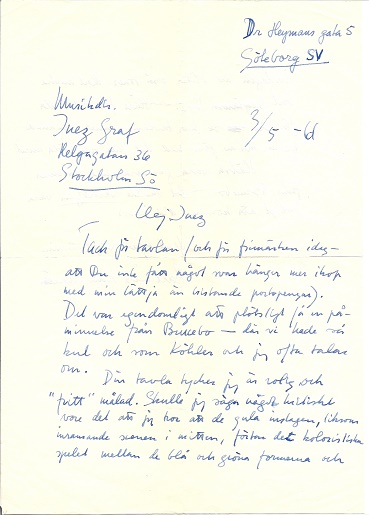 Dr Heymans gata 5
Göteborg SV
Musikdir.
Inez Graf
Helgagatan 36
Stockholm Sö
3/5 -61
Hej Inez
Tack för tavlan (och för frimärken idag –
att Du inte fått något svar hänger mer ihop
med min lättja än bristande portopengar).
Det var egendomligt att plötsligt få en på-
minnelse från Bussebo — där vi hade så
kul och som Köhler och jag ofta talar
om.
Din tavla tycker jag är rolig och
"fritt" målad. Skulle jag säga något kritiskt
vore det att jag tror att de gula inslagen, liksom
inramande scenen i mitten, förtar det koloristiska
spelet mellan de blå och gröna formerna och